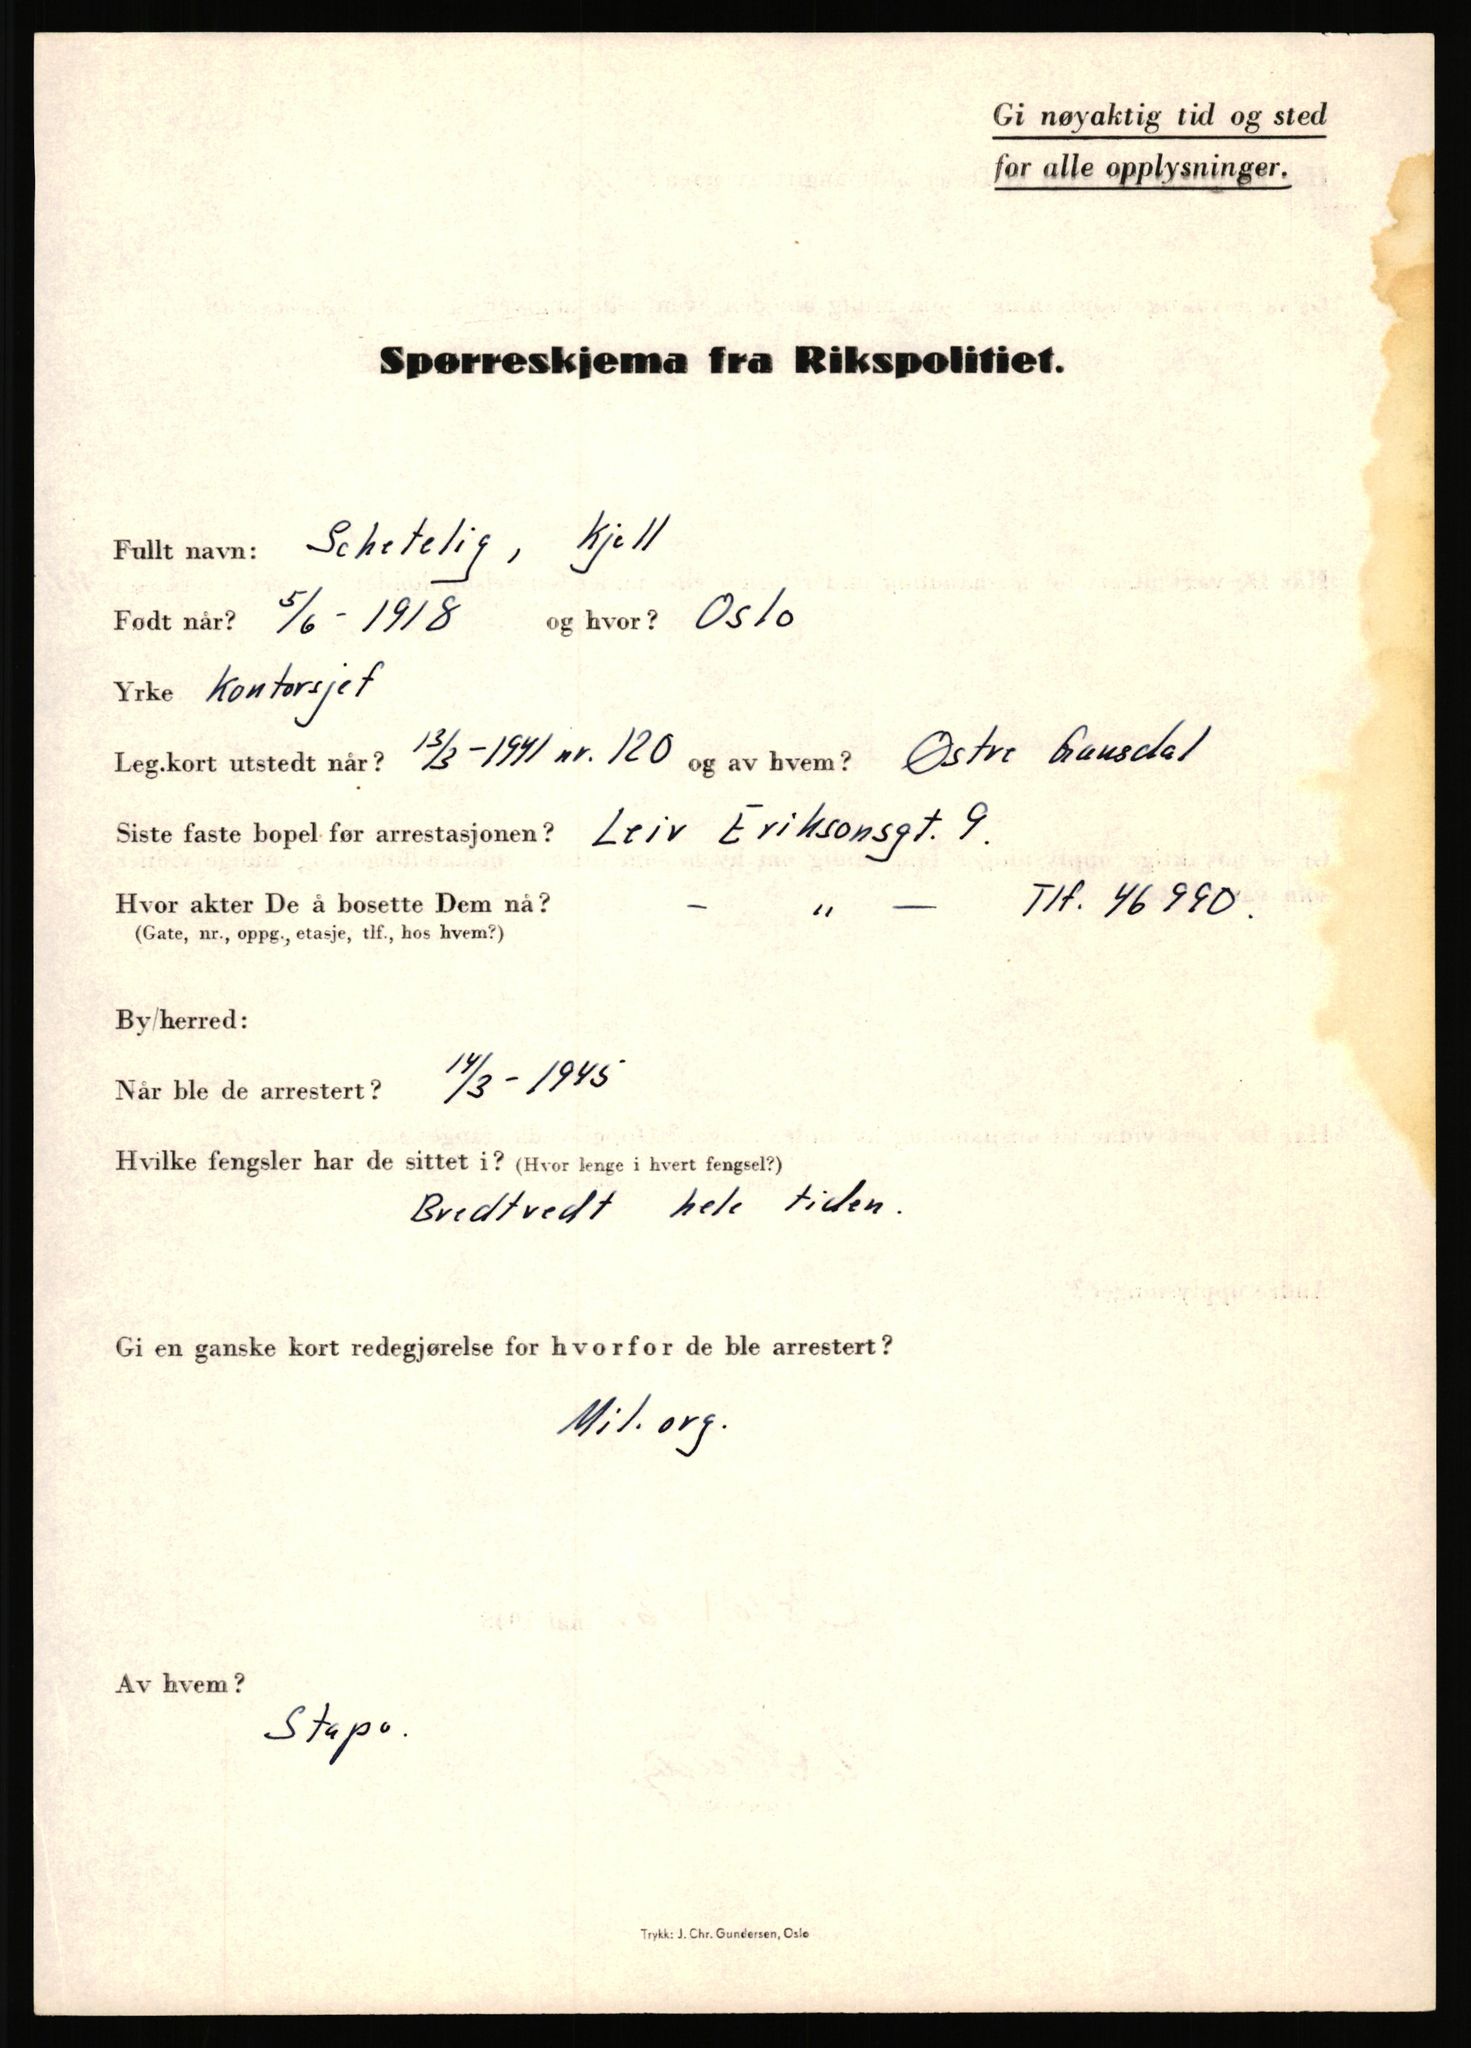 Gi nøyaktig tid og sted
for alle opplysninger.
Spørreskjema fra Rikspolitiet.
Fullt navn: Schetelig, Kjell
Født når? 5/6 - 1918 og hvor? Oslo
Yrke Kontorsjef
Leg.kort utstedt når? 13/3 - 1941 nr. 120 og av hvem? Østre Gausdal
Siste faste bopel før arrestasjonen? Leiv Eriksonsgt. 9.
Hvor akter De å bosette Dem nå? - " - Tlf. 46990.
(Gate, nr., oppg., etasje, tlf., hos hvem?)
By/herred:
Når ble de arrestert? 14/3 - 1945
Hvilke fengsler har de sittet i? (Hvor lenge i hvert fengsel?)
Bredtvedt hele tiden.
Gi en ganske kort redegjørelse for hvorfor de ble arrestert?
Mil. org.
Av hvem?
Stapo.
Trykk: J. Chr. Gundersen, Oslo